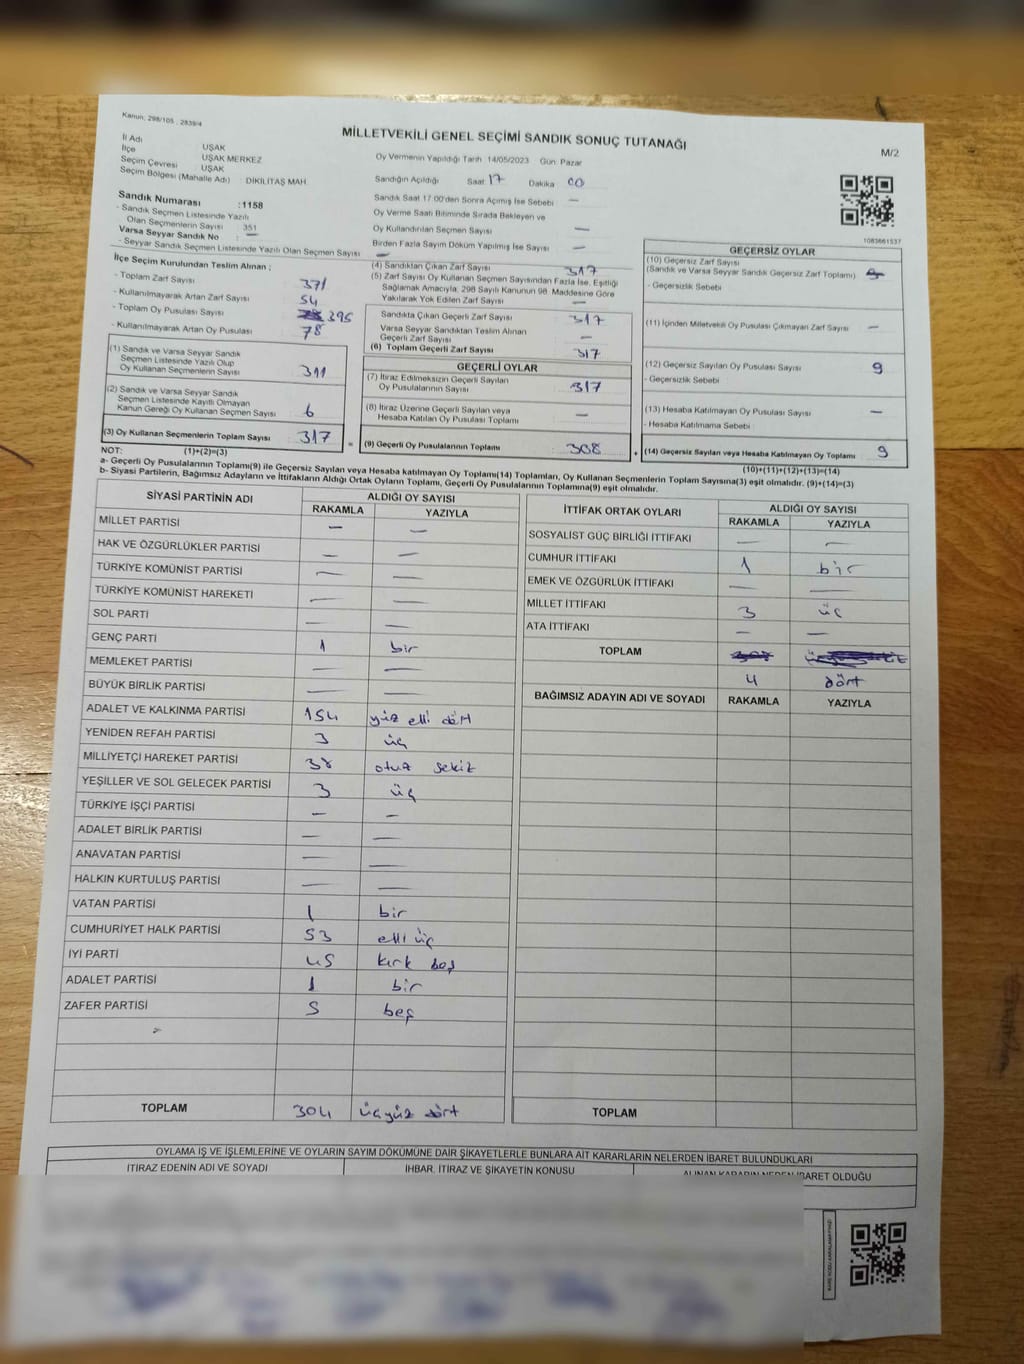 Kanun, 298/105 , 2839/4
MİLLETVEKİLİ GENEL SEÇİMİ SANDIK SONUÇ TUTANAĞI
M/2
İl Adı UŞAK
İlçe UŞAK MERKEZ
Seçim Çevresi UŞAK
Seçim Bölgesi (Mahalle Adı) : DİKİLİTAŞ MAH.
Oy Vermenin Yapıldığı Tarih 14/05/2023 Gün: Pazar
Sandığın Açıldığı Saat 17 Dakika 00
Sandık Saat 17:00'den Sonra Açımış İse Sebebi —
Oy Verme Saati Bitiminde Sırada Bekleyen ve
Oy Kullandırılan Seçmen Sayısı —
Birden Fazla Sayım Döküm Yapılmış İse Sayısı —
1083661537
Sandık Numarası :1158
- Sandık Seçmen Listesinde Yazılı
Olan Seçmenlerin Sayısı 351
Varsa Seyyar Sandık No —
- Seyyar Sandık Seçmen Listesinde Yazılı Olan Seçmen Sayısı —
İlçe Seçim Kurulundan Teslim Alınan ;
- Toplam Zarf Sayısı 371
- Kullanılmayarak Artan Zarf Sayısı 54
- Toplam Oy Pusulası Sayısı 395
- Kullanılmayarak Artan Oy Pusulası 78
(1) Sandık ve Varsa Seyyar Sandık
Seçmen Listesinde Yazılı Olup
Oy Kullanan Seçmenlerin Sayısı 311
(2) Sandık ve Varsa Seyyar Sandık
Seçmen Listesinde Kayıtlı Olmayan
Kanun Gereği Oy Kullanan Seçmen Sayısı 6
(3) Oy Kullanan Seçmenlerin Toplam Sayısı 317 =
(1)+(2)=(3)
(4) Sandıktan Çıkan Zarf Sayısı 317
(5) Zarf Sayısı Oy Kullanan Seçmen Sayısından Fazla İse, Eşitliği
Sağlamak Amacıyla, 298 Sayılı Kanunun 98. Maddesine Göre
Yakılarak Yok Edilen Zarf Sayısı —
Sandıkta Çıkan Geçerli Zarf Sayısı 317
Varsa Seyyar Sandıktan Teslim Alınan
Geçerli Zarf Sayısı —
(6) Toplam Geçerli Zarf Sayısı 317
GEÇERLİ OYLAR
(7) İtiraz Edilmeksizin Geçerli Sayılan
Oy Pusulalarının Sayısı 317
(8) İtiraz Üzerine Geçerli Sayılan veya
Hesaba Katılan Oy Pusulası Toplamı —
(9) Geçerli Oy Pusulalarının Toplamı 308 +
GEÇERSİZ OYLAR
(10) Geçersiz Zarf Sayısı
(Sandık ve Varsa Seyyar Sandık Geçersiz Zarf Toplamı)
- Geçersizlik Sebebi
(11) İçinden Milletvekili Oy Pusulası Çıkmayan Zarf Sayısı —
(12) Geçersiz Sayılan Oy Pusulası Sayısı 9
- Geçersizlik Sebebi
(13) Hesaba Katılmayan Oy Pusulası Sayısı —
- Hesaba Katılmama Sebebi :
(14) Geçersiz Sayılan veya Hesaba Katılmayan Oy Toplamı 9
(10)+(11)+(12)+(13)=(14)
NOT:
a- Geçerli Oy Pusulalarının Toplamı(9) ile Geçersiz Sayılan veya Hesaba katılmayan Oy Toplamı(14) Toplamları, Oy Kullanan Seçmenlerin Toplam Sayısına(3) eşit olmalıdır. (9)+(14)=(3)
b- Siyasi Partilerin, Bağımsız Adayların ve İttifakların Aldığı Ortak Oyların Toplamı, Geçerli Oy Pusulalarının Toplamına(9) eşit olmalıdır.
SİYASİ PARTİNİN ADI ALDIĞI OY SAYISI
RAKAMLA YAZIYLA
MİLLET PARTİSİ — —
HAK VE ÖZGÜRLÜKLER PARTİSİ — —
TÜRKİYE KOMÜNİST PARTİSİ — —
TÜRKİYE KOMÜNİST HAREKETİ — —
SOL PARTİ — —
GENÇ PARTİ 1 bir
MEMLEKET PARTİSİ — —
BÜYÜK BİRLİK PARTİSİ — —
ADALET VE KALKINMA PARTİSİ 154 yüz elli dört
YENİDEN REFAH PARTİSİ 3 üç
MİLLİYETÇİ HAREKET PARTİSİ 38 otuz sekiz
YEŞİLLER VE SOL GELECEK PARTİSİ 3 üç
TÜRKİYE İŞÇİ PARTİSİ — —
ADALET BİRLİK PARTİSİ — —
ANAVATAN PARTİSİ — —
HALKIN KURTULUŞ PARTİSİ — —
VATAN PARTİSİ 1 bir
CUMHURİYET HALK PARTİSİ 53 elli üç
İYİ PARTİ 45 kırk beş
ADALET PARTİSİ 1 bir
ZAFER PARTİSİ 5 beş
TOPLAM 304 üçyüz dört
İTTİFAK ORTAK OYLARI ALDIĞI OY SAYISI
RAKAMLA YAZIYLA
SOSYALİST GÜÇ BİRLİĞİ İTTİFAKI — —
CUMHUR İTTİFAKI 1 bir
EMEK VE ÖZGÜRLÜK İTTİFAKI — —
MİLLET İTTİFAKI 3 üç
ATA İTTİFAKI — —
TOPLAM
4 dört
BAĞIMSIZ ADAYIN ADI VE SOYADI RAKAMLA YAZIYLA
TOPLAM
OYLAMA İŞ VE İŞLEMLERİNE VE OYLARIN SAYIM DÖKÜMÜNE DAİR ŞİKAYETLERLE BUNLARA AİT KARARLARIN NELERDEN İBARET BULUNDUKLARI
İTİRAZ EDENİN ADI VE SOYADI İHBAR, İTİRAZ VE ŞİKAYETİN KONUSU ALINAN KARARIN NEDEN İBARET OLDUĞU